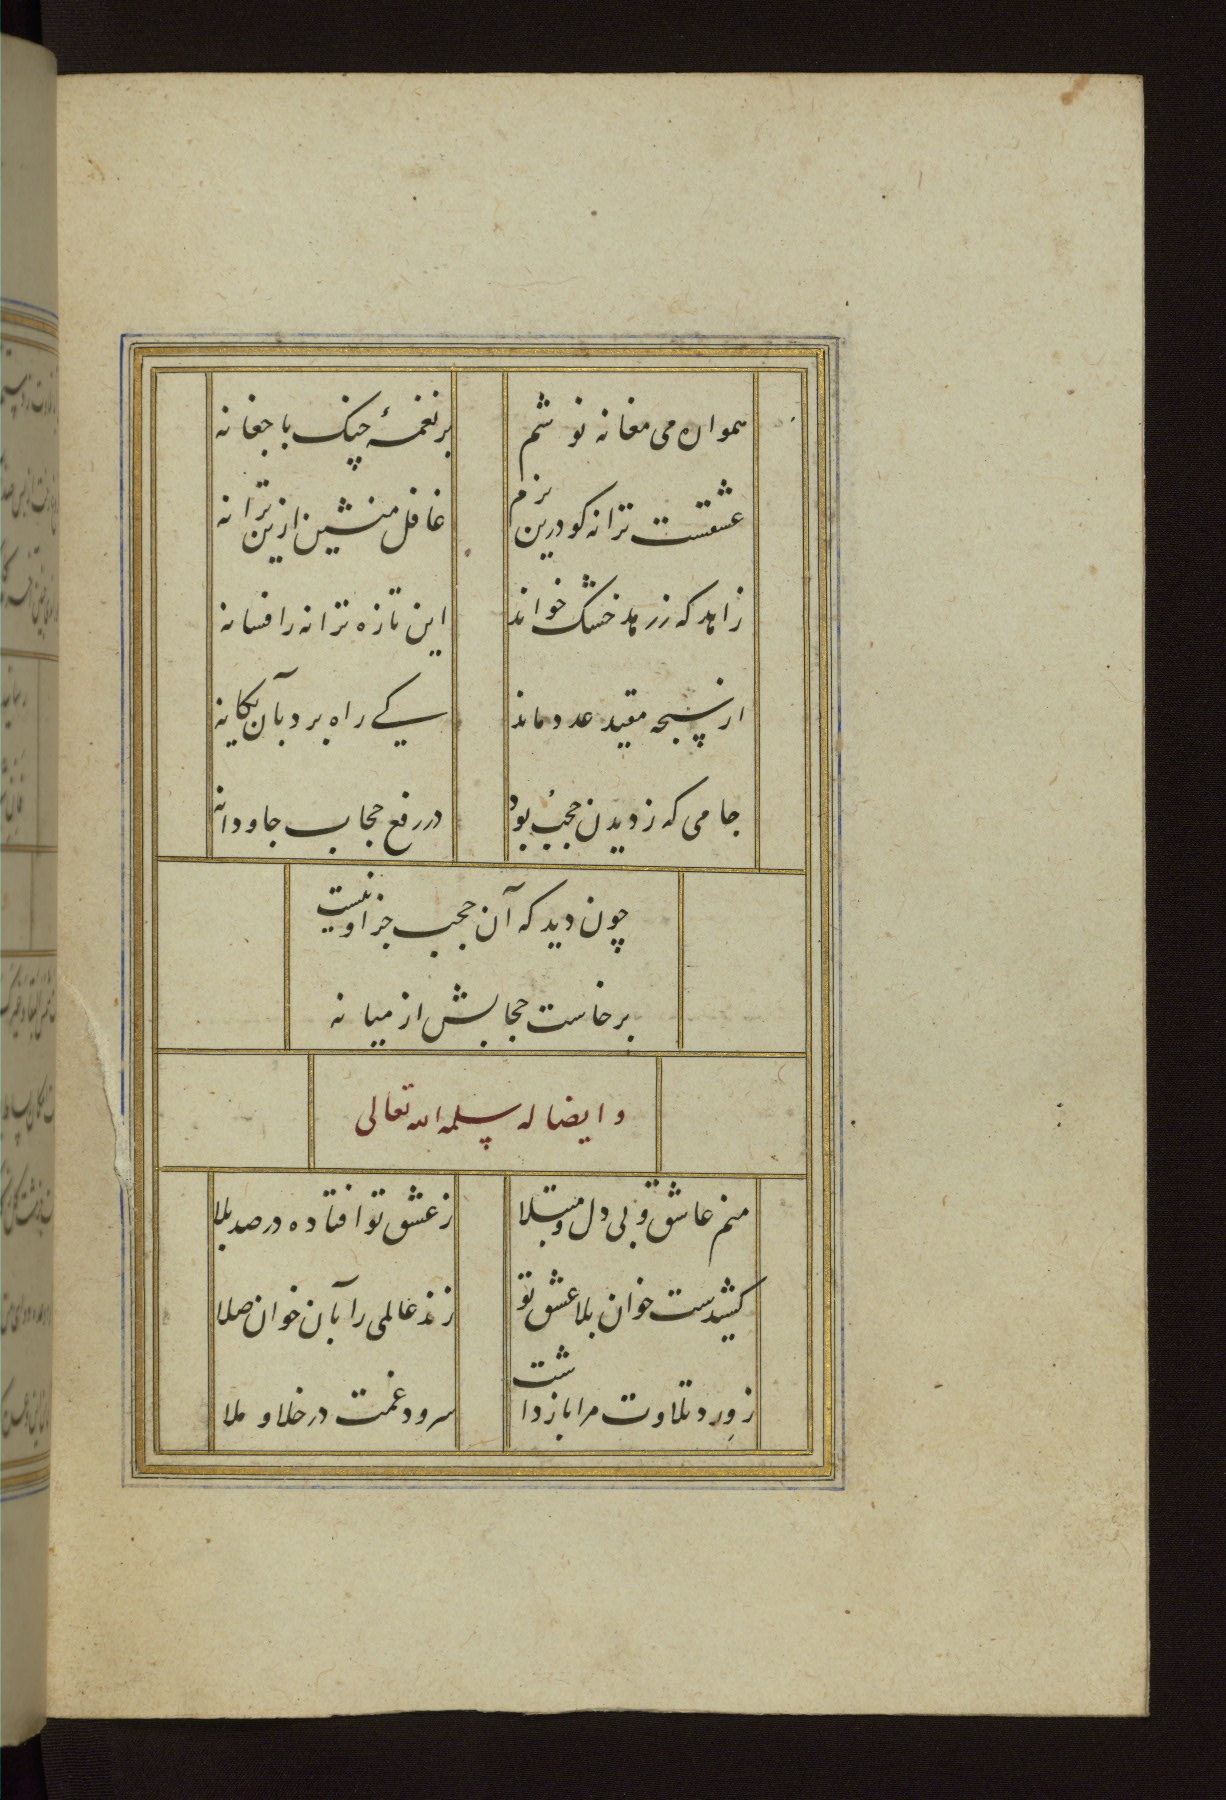 همواره می مغانه نوشم بر نغمهٔ چنک با چغانه
عشقست ترانه کو درین بزم غافل منشین ازین ترانه
زاهد که ز زهد خشک خواند این تازه ترانه را فسانه
از سبحه مقید عدد ماند کے راه برد بآن یکانه
جامی که ز دیدن حجب بود در رفع حجاب جاودانه
چون دید که آن حجب جز او نیست
برخاست حجابش از میانه
و ایضا له سلمه الله تعالی
منم عاشق و بی دل و مبتلا ز عشق تو افتاده در صد بلا
کشیدست خوان بلا عشق تو زند عالمی را بآن خوان صلا
ز وِرد تلاوت مرا باز داشت سرود غمت در خلا و ملا